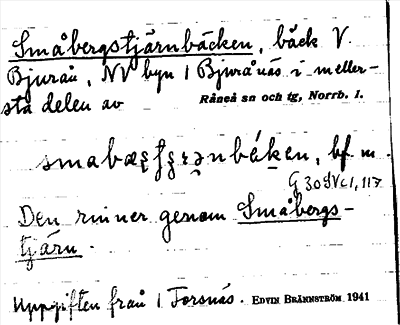 Småbergstjärnbäcken, bäck V.
Bjurån, NV byn 1 Bjurånäs i meller-
sta delen av Råneå sn och tg, Norrb. l.
bf m.
G 30 SV c 1, 117
Den rinner genom Småbergs-
tjärn.
Uppgiften från 1 Forsnäs. EDVIN BRÄNNSTRÖM 1941